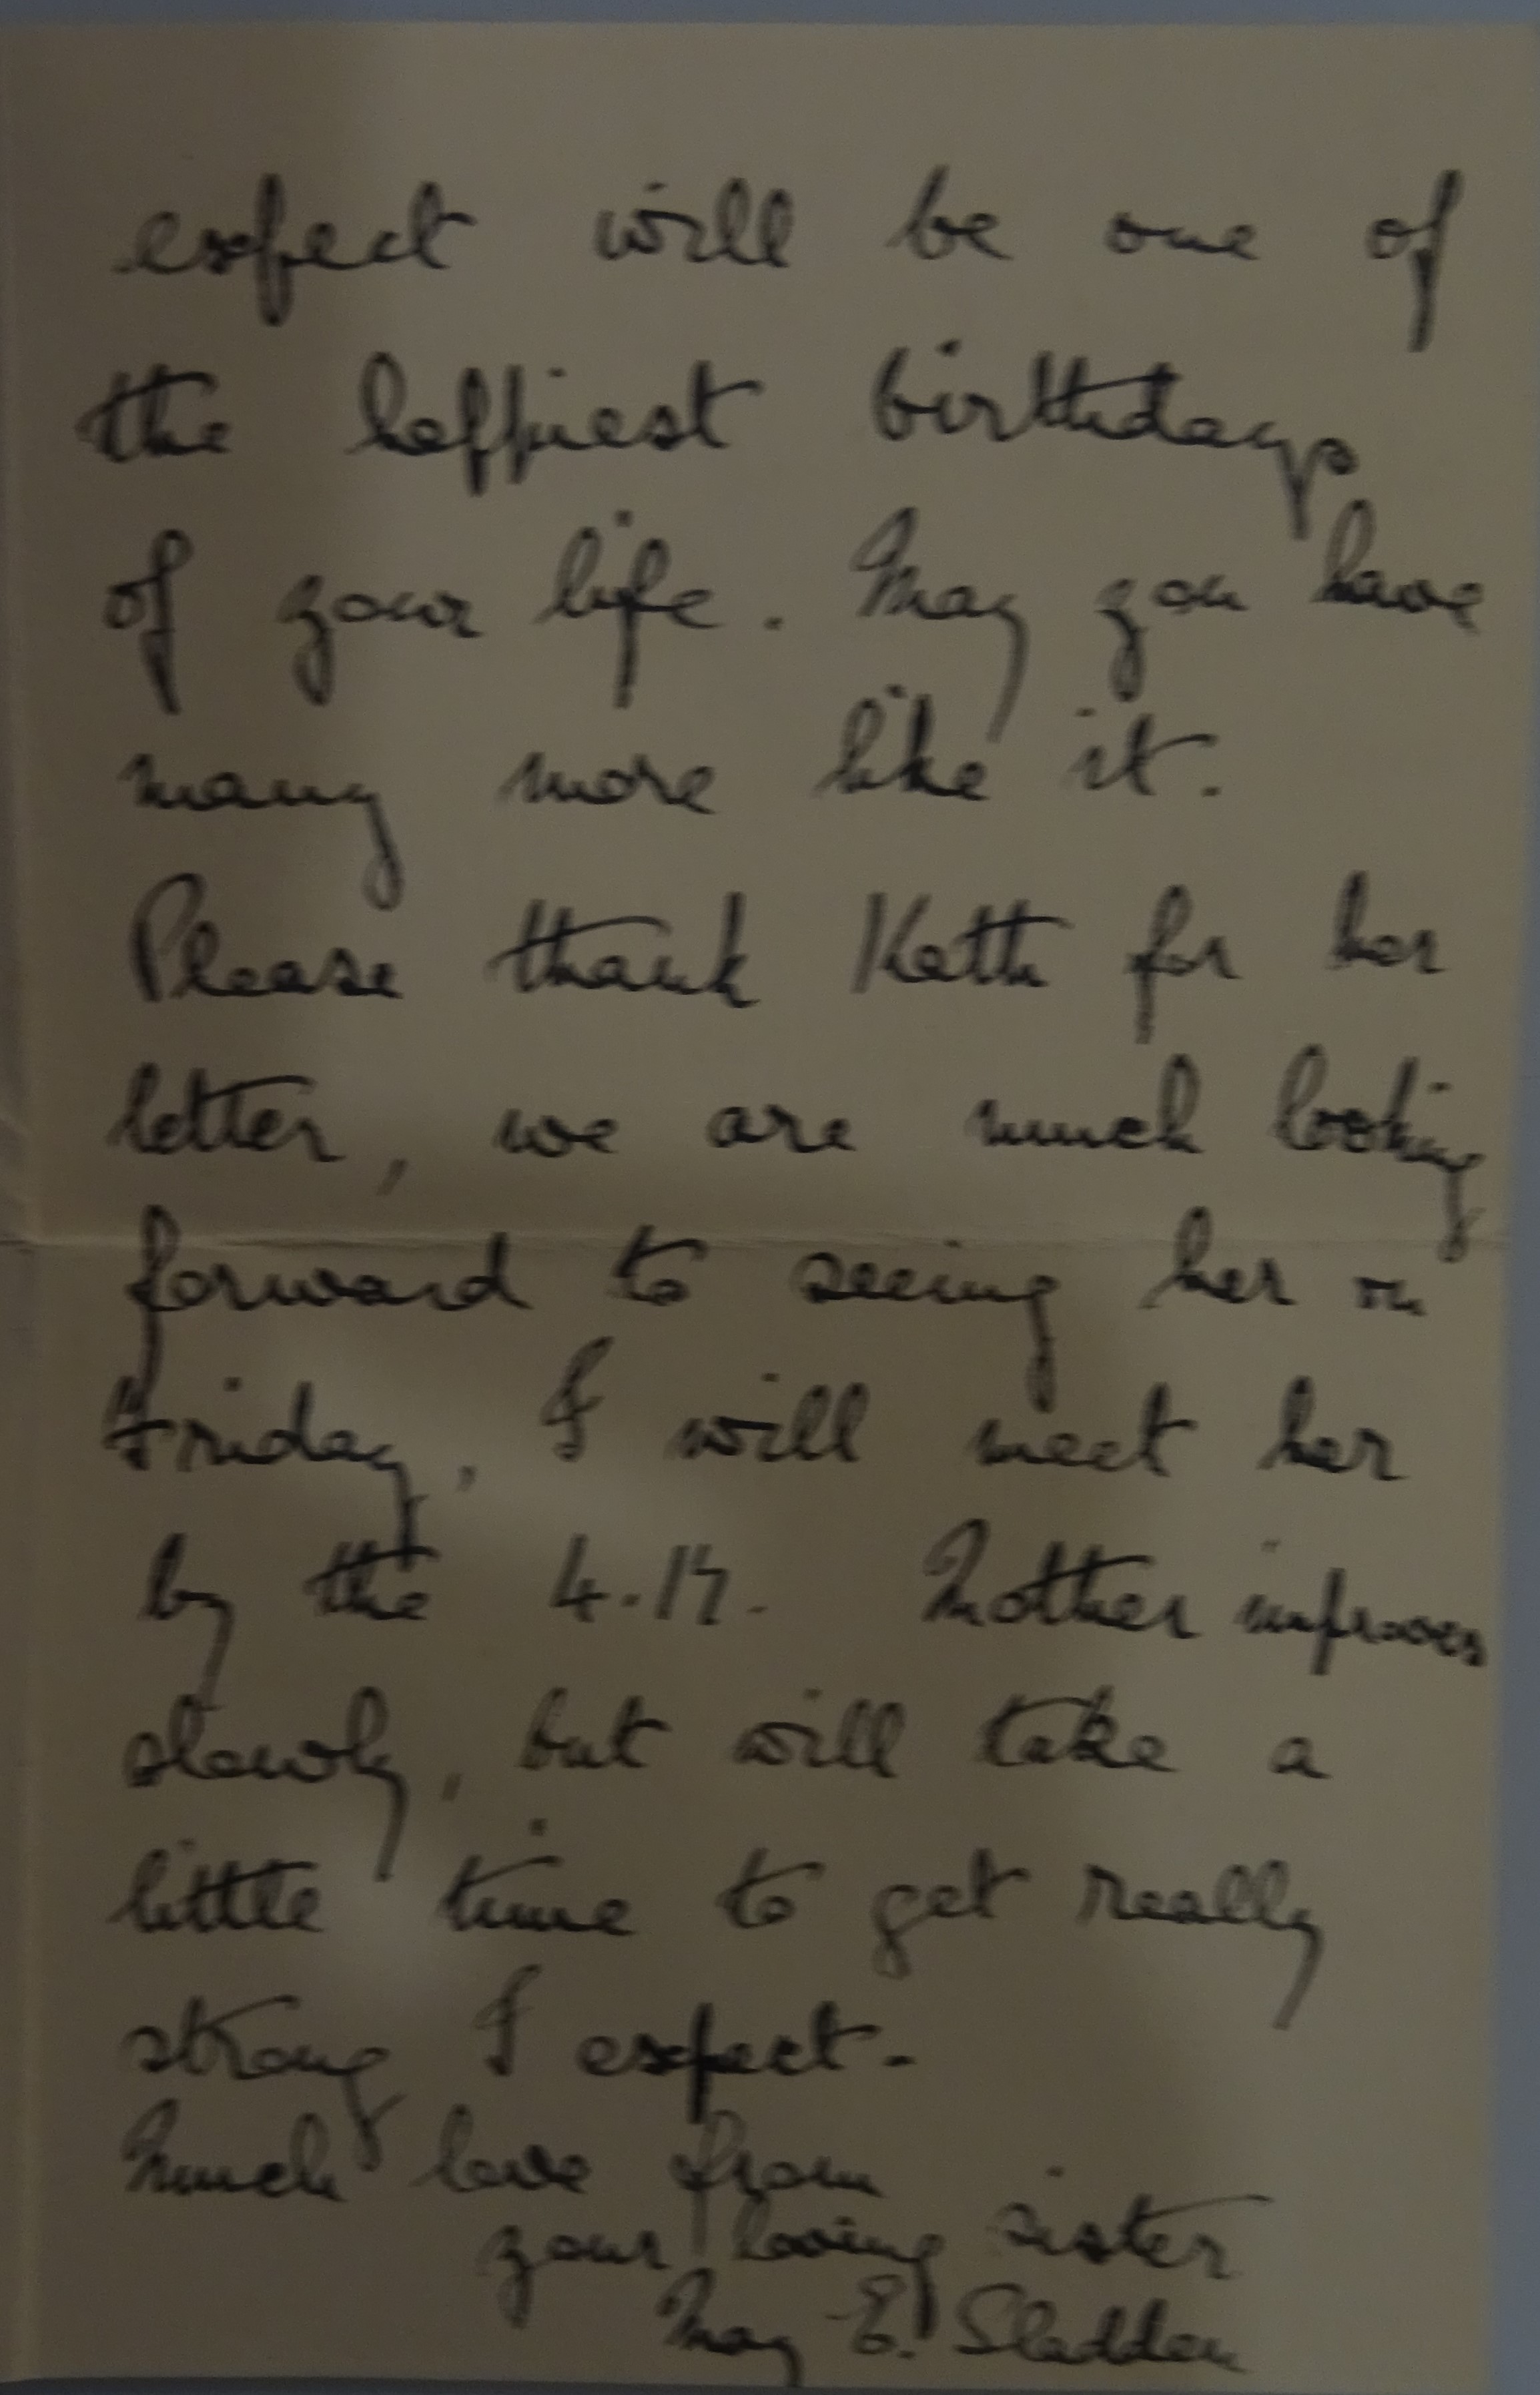 expect will be one of
the happiest birthdays
of your life. May you have
many more like it.
Please thank Kath for her
letter, we are much looking
forward to seeing her on
Friday, I will meet her
by the 4.17. Mother improves
slowly, but will take a
little time to get really
strong I expect.
Much love from
your loving sister
May E. Sladden